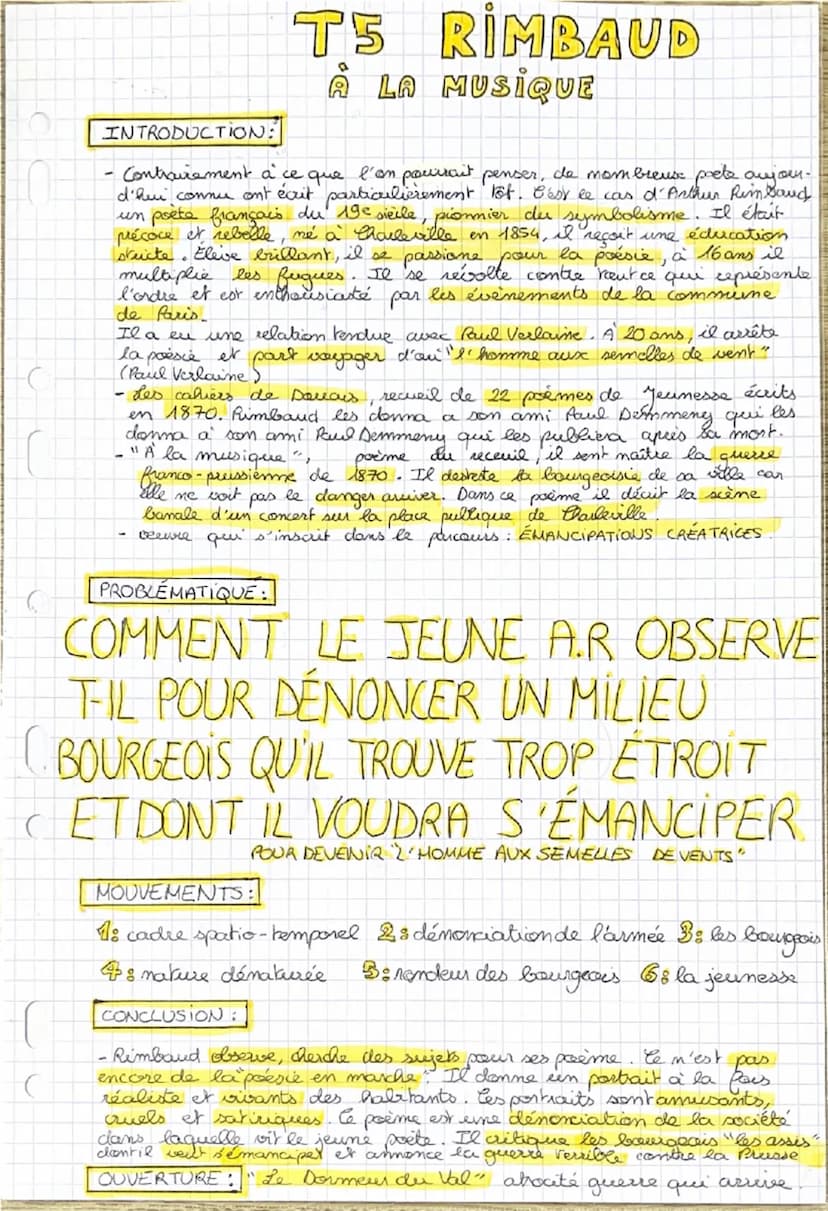 T5 RIMBAUD
À LA MUSIQUE
INTRODUCTION:
- Contrairement à ce que l'on pourrait penser, de nombreuse poète aujour-
d'hui connu ont écrit particulièrement tôt. C'est le cas d'Arthur Rimbaud
un poète français du 19e siècle, pionnier du symbolisme. Il était
précoce et rebelle, né à Charleville en 1854, il reçoit une éducation
stricte. Élève brillant, il se passione pour la poésie, à 16 ans il
multiplie les fugues. Il se révolte contre tout ce qui représente
l'ordre et est enthousiasté par les évènements de la commune
de Paris.
Il a eu une relation tendue avec Paul Verlaine. À 20 ans, il arrête
la poésie et part voyager d'où "l'homme aux semelles de vent"
(Paul Verlaine)
- Les cahiers de Douais, recueil de 22 poèmes de Jeunesse écrits
en 1870. Rimbaud les donna a son ami Paul Demmeny qui les
donna à son ami Paul Demmeny qui les publiera après sa mort.
- "À la musique", poème du receuil, il sent naître la guerre
franco-prussienne de 1870. Il desteste la bourgeoisie de sa ville car
elle ne voit pas le danger arriver. Dans ce poème il décrit la scène
banale d'un concert sur la place publique de Charleville.
- oeuvre qui s'inscrit dans le parcours : ÉMANCIPATIONS CRÉATRICES.
PROBLÉMATIQUE:
COMMENT LE JEUNE A.R OBSERVE
T-IL POUR DÉNONCER UN MILIEU
BOURGEOIS QU'IL TROUVE TROP ÉTROIT
ET DONT IL VOUDRA S'ÉMANCIPER
POUR DEVENIR "L'HOMME AUX SEMELLES DE VENTS"
MOUVEMENTS:
1: cadre spatio-temporel 2: dénonciation de l'armée 3: les bourgeois
4: nature dénaturée 5: rondeur des bourgeois 6: la jeunesse
CONCLUSION:
- Rimbaud observe, cherche des sujets pour ses poème. Ce n'est pas
encore de la "poésie en marche". Il donne un portrait à la fois
réaliste et vivants des habitants. Les portraits sont amusants,
cruels et satiriques. Ce poème est une dénonciation de la société
dans laquelle vit le jeune poète. Il critique les bourgeois "les assis"
dont il veut s'émanciper et annonce la guerre terrible contre la Prusse
OUVERTURE: "Le Dormeur du Val" atrocité guerre qui arrive.